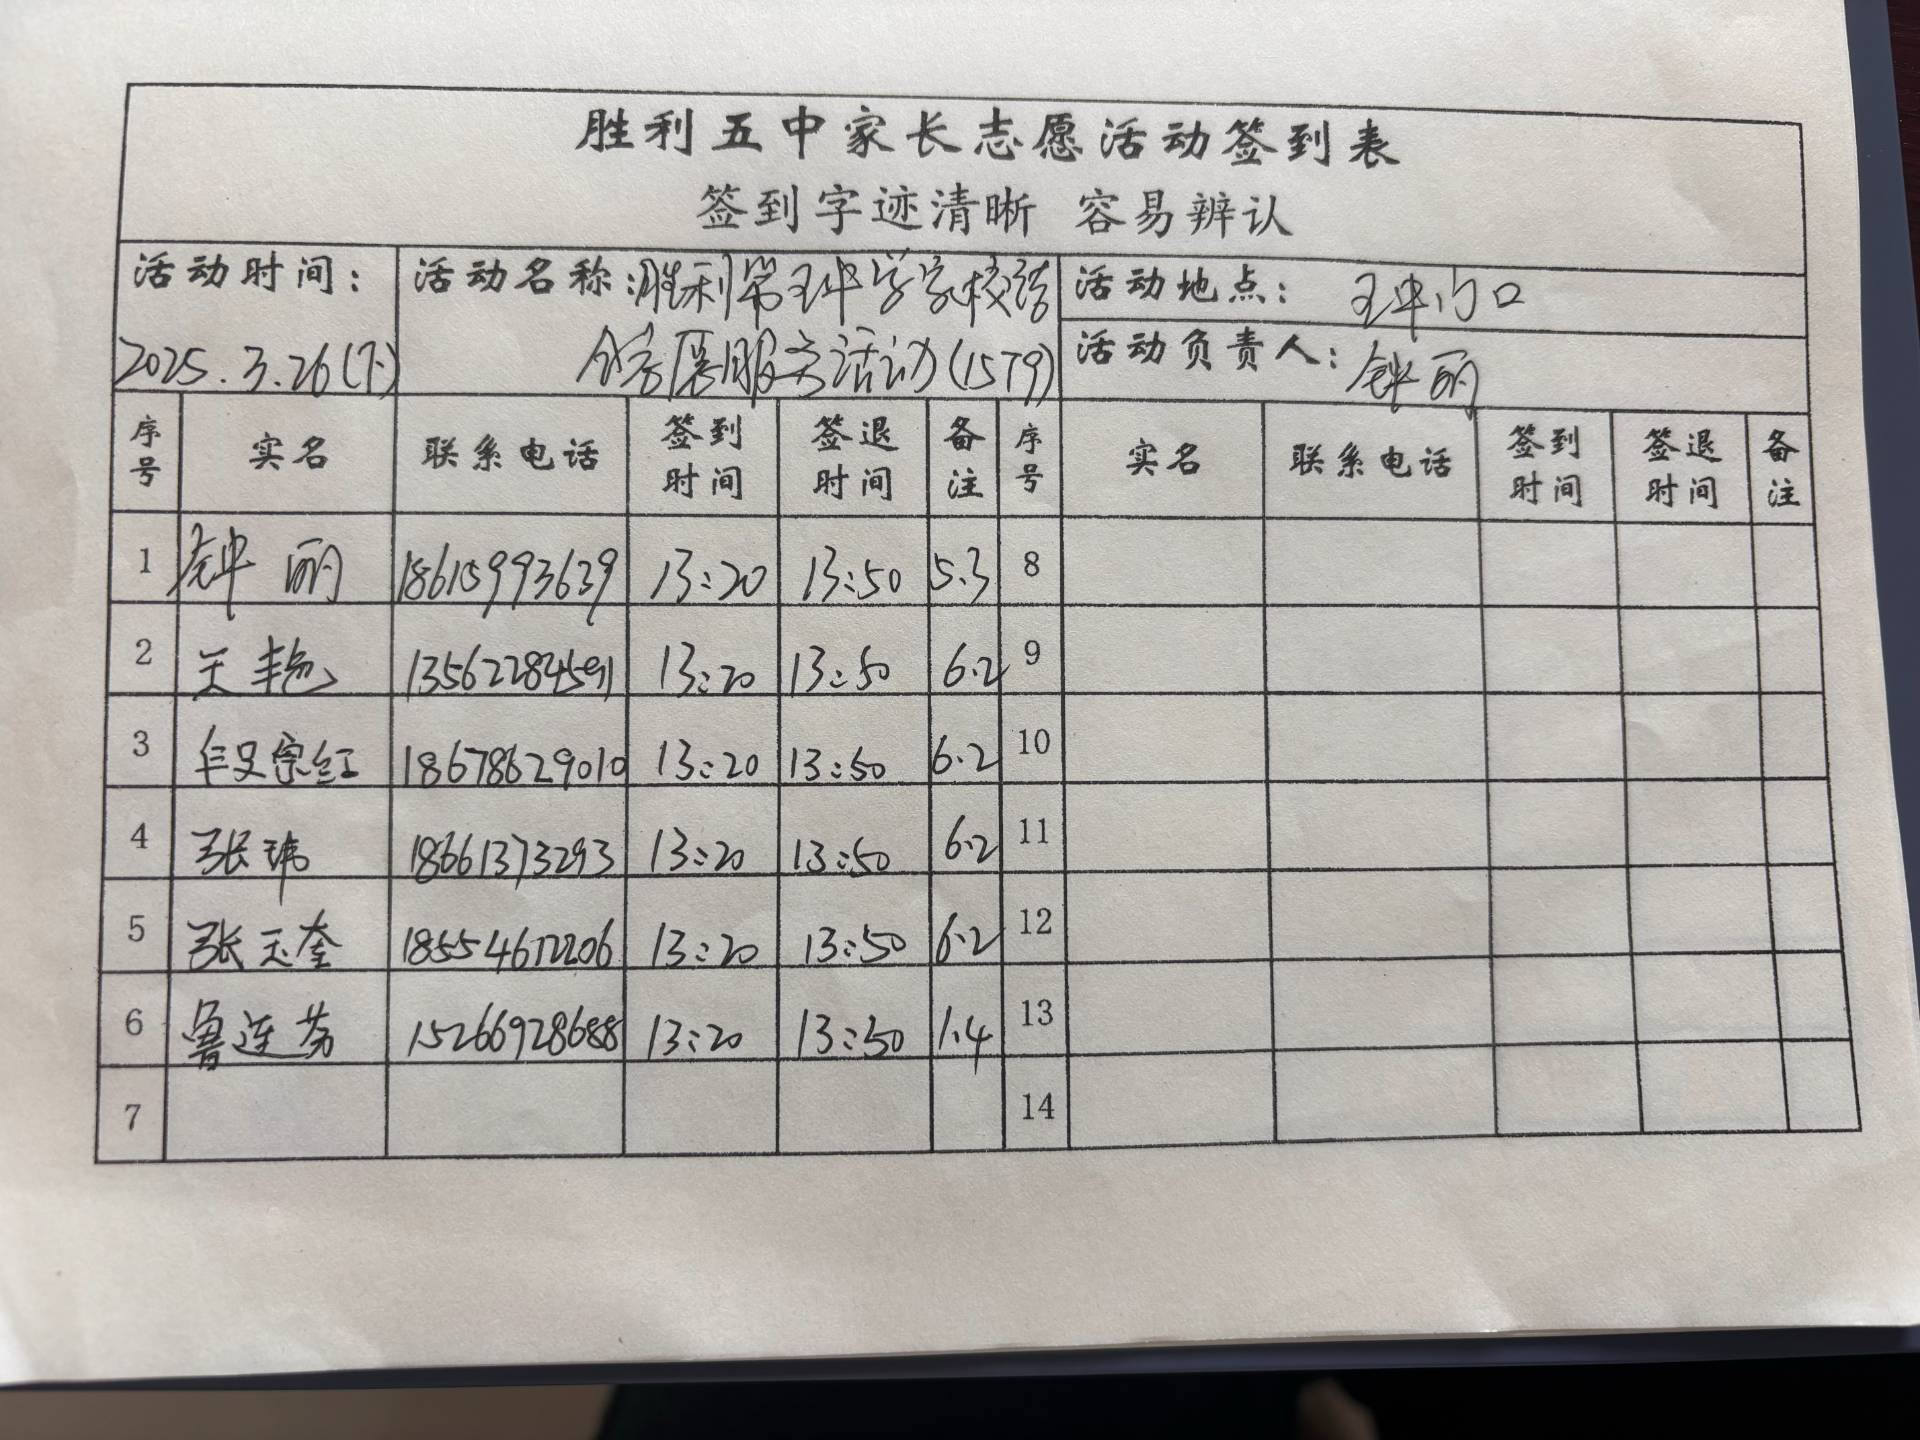 胜利五中家长志愿活动签到表
签到字迹清晰 容易辨认
活动时间：
2025.3.26(下)
活动名称：胜利第五中学家校
展服务活动(1579)
活动地点： 五中门口
活动负责人： 钟丽
序号 实名 联系电话 签到时间 签退时间 备注 序号 实名 联系电话 签到时间 签退时间 备注
1 钟丽 18615993639 13:20 13:50 5.3 8
2 王艳 13562284591 13:20 13:50 6.2 9
3 宗红 18678629010 13:20 13:50 6.2 10
4 张玮 18661373293 13:20 13:50 6.2 11
5 张玉奎 18554612206 13:20 13:50 6.2 12
6 鲁连芬 15266928688 13:20 13:50 1.4 13
7 14